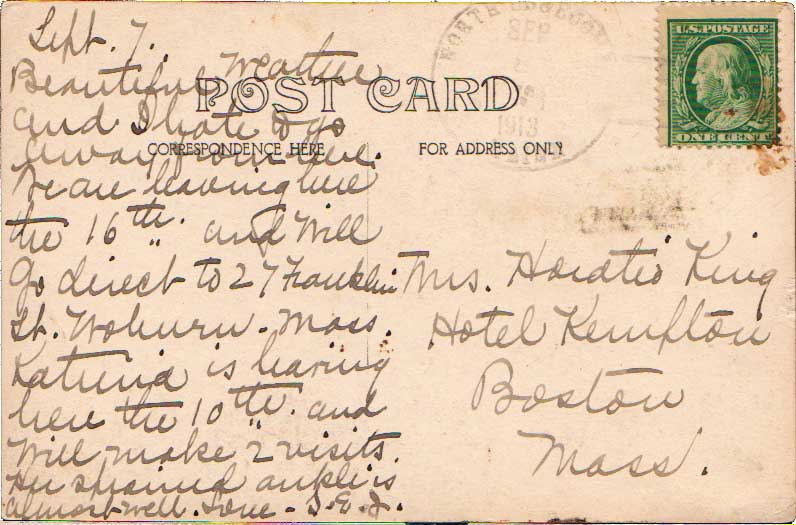 Sept. 7.
Beautiful weather
and I hate to go
away from here.
We are leaving here
the 16th. and will
go direct to 27 Franklin
St. Woburn - Mass.
Katrina is leaving
here the 10th. and
will make 2 visits.
Her sprained ankle is
almost well. Love - S. E. J.
POST CARD
CORRESPONDENCE HERE
FOR ADDRESS ONLY
NORTH
SEP
1913
U.S. POSTAGE
ONE CENT
Mrs. Horatio King
Hotel Kempton
Boston
Mass.